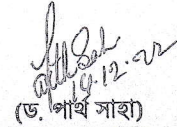 14.12.22
(ড. পার্থ সাহা)